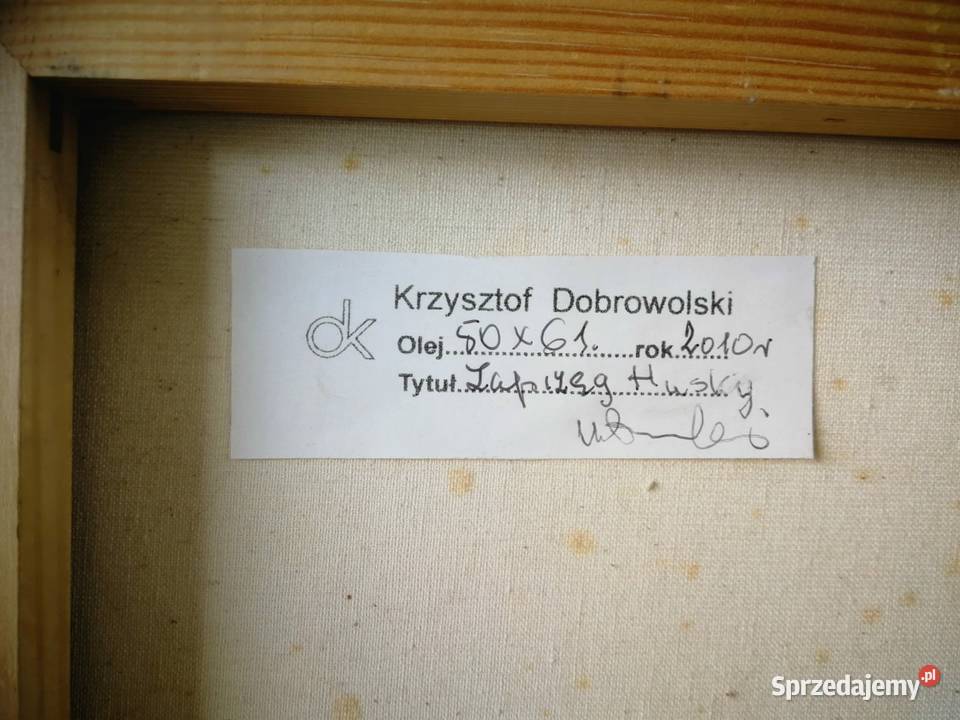 dk
Krzysztof Dobrowolski
Olej...50 x 61.......rok.2010r
Tytuł.Zaprzęg Husky
Sprzedajemy.pl